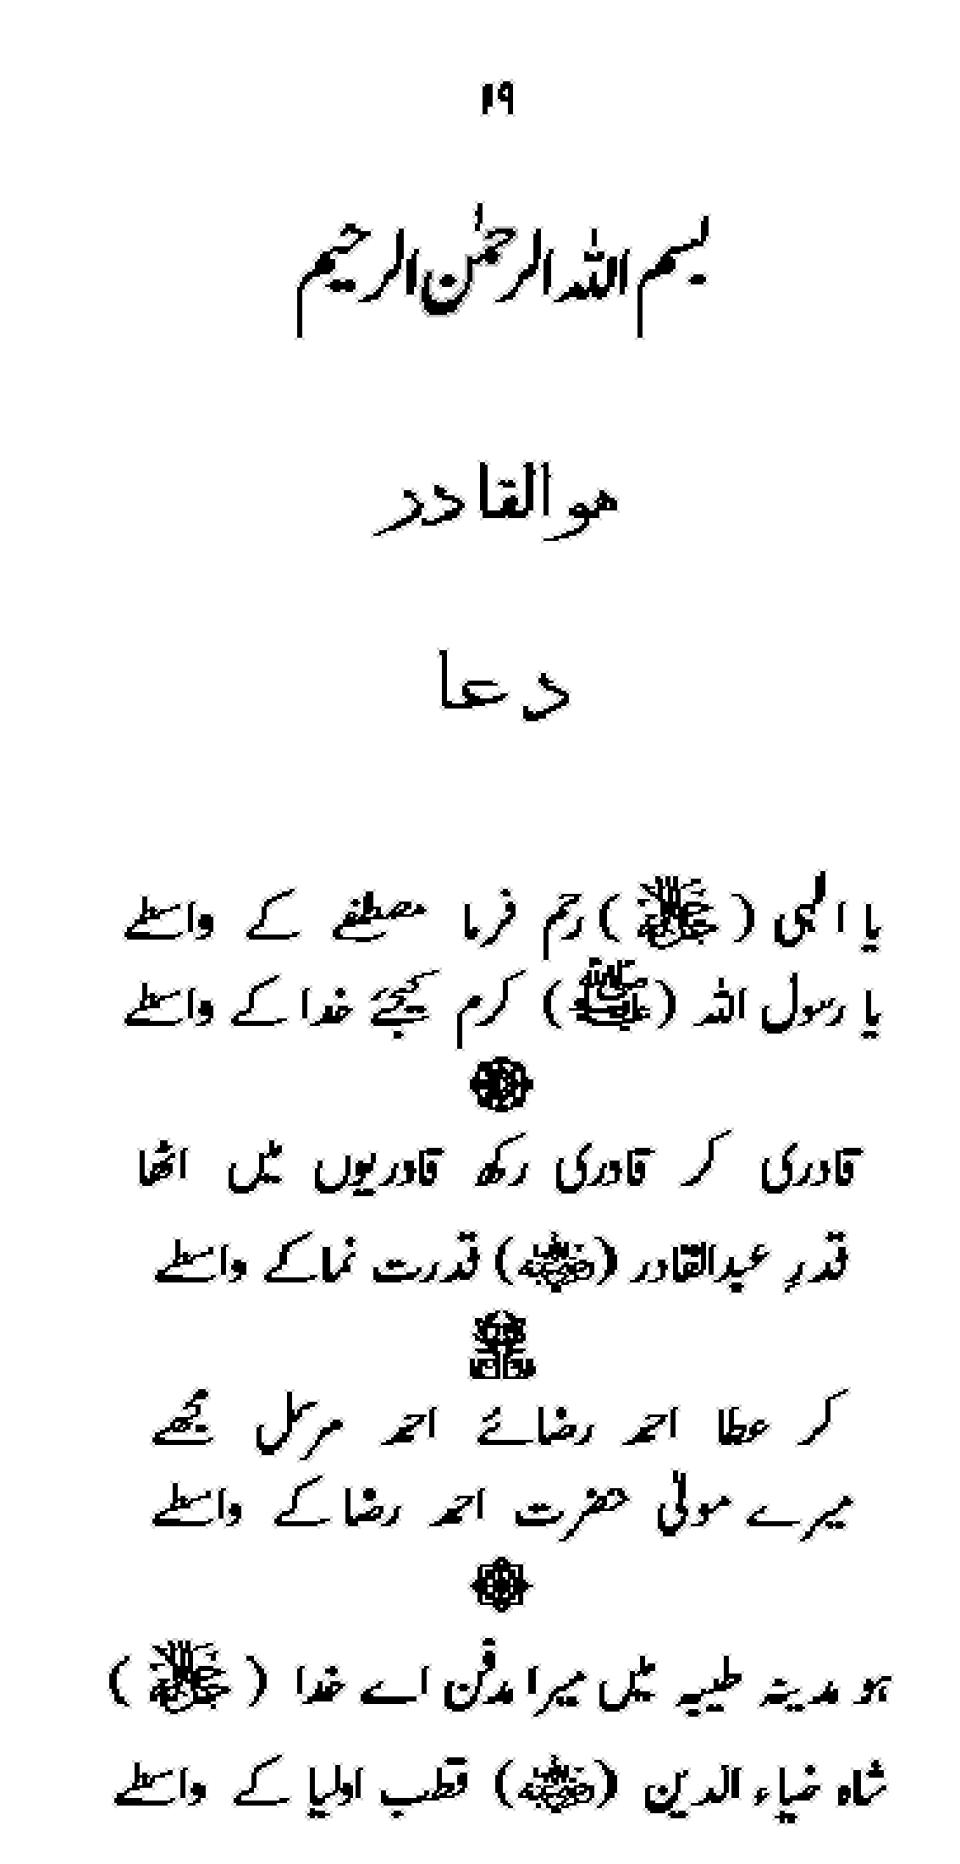 ۱۹
بسم اللہ الرحمٰن الرحیم
ھوالقادر
دعا
یا الٰہی (ﷻ) رحم فرما مصطفٰے کے واسطے
یا رسول اللہ (ﷺ) کرم کیجئے خدا کے واسطے
قادری کر قادری رکھ قادریوں میں اٹھا
قدرِ عبدالقادر (رضی اللہ عنہ) قدرت نما کے واسطے
کر عطا احمد رضائے احمد مرسل مجھے
میرے مولٰی حضرت احمد رضا کے واسطے
ہو مدینہ طیبہ میں میرا مدفن اے خدا (ﷻ)
شاہ ضیاء الدین (رضی اللہ عنہ) قطب اولیا کے واسطے